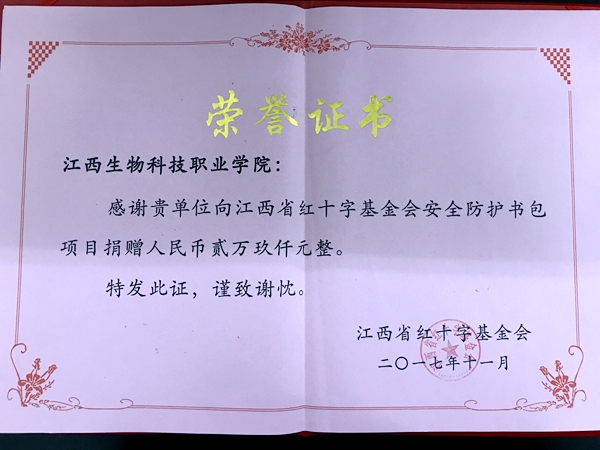 荣誉证书
江西生物科技职业学院：
感谢贵单位向江西省红十字基金会安全防护书包
项目捐赠人民币贰万玖仟元整。
特发此证，谨致谢忱。
江西省红十字基金会
二〇一七年十一月